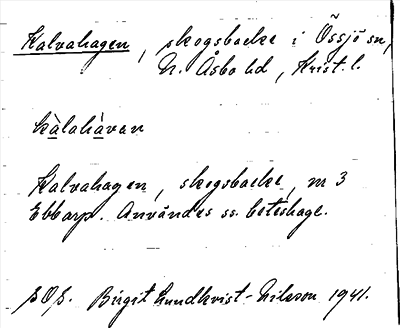 Kalvahagen, skogsbacke i Össjö sn,
N. Åsbo hd, Krist. l.
kàlahàvan
Kalvahagen, skogsbacke, m 3
Ebbarp. Användes ss. beteshage.
Birgit Lundkvist-Nilsson 1941.